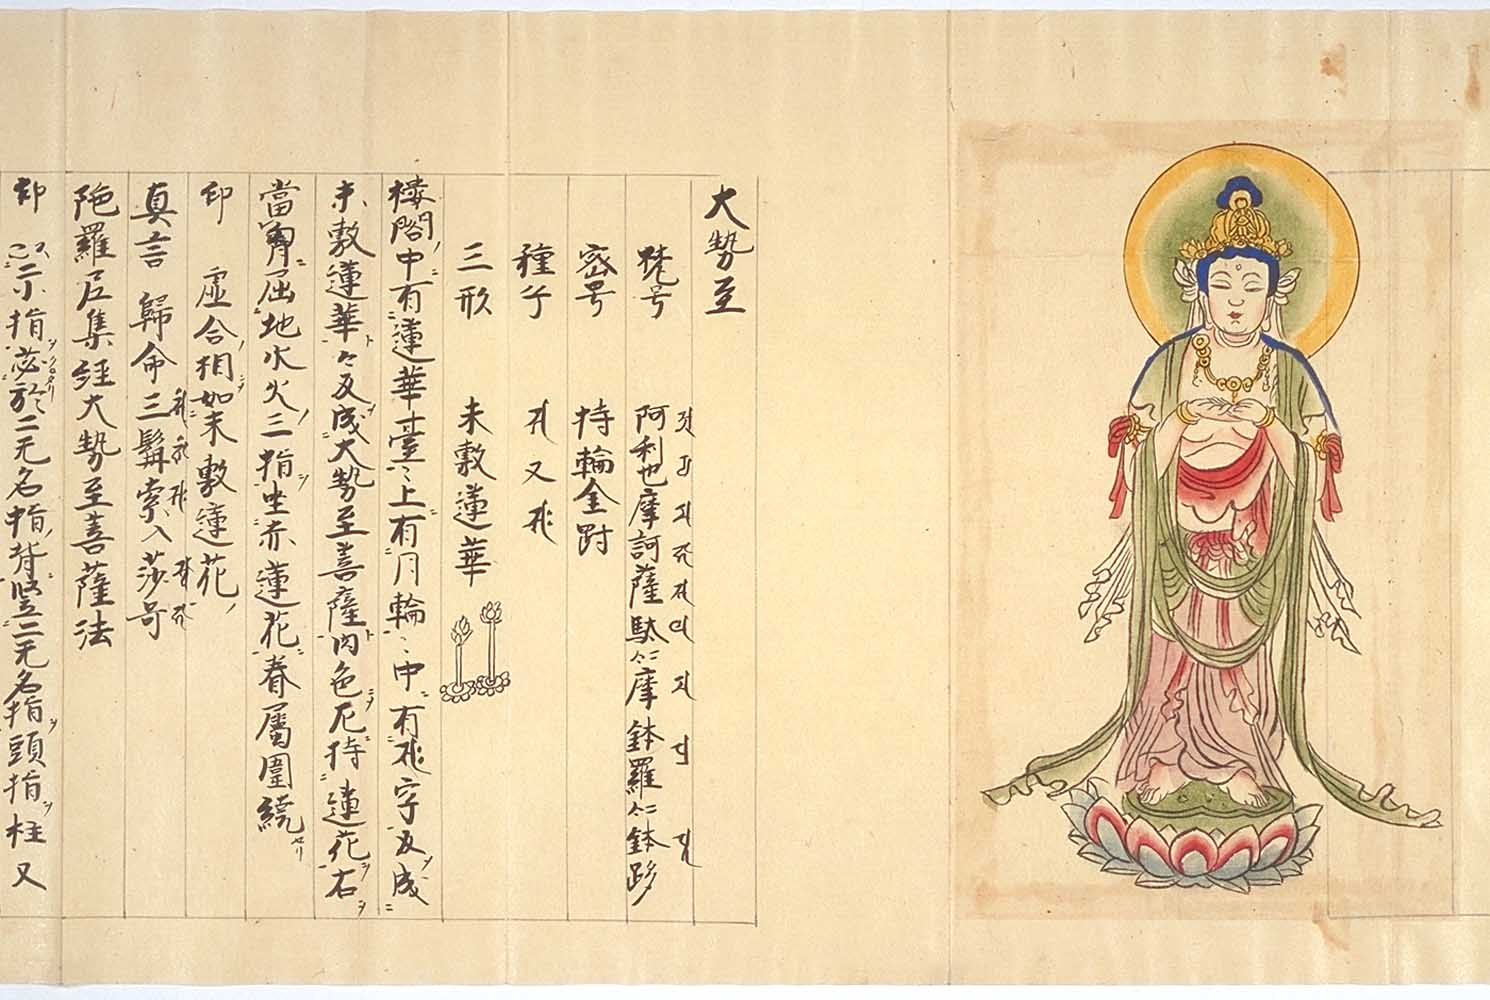 大勢至
梵号 阿利也摩訶薩駄仁摩鉢羅仁鉢跢
密号 持輪金剛
種子
三形 未敷蓮華
樓閣中有蓮華臺〻上有月輪〻中有 字反成
未敷蓮華々反成大勢至菩薩肉色左持蓮花右
當胷屈地水火三指坐赤蓮花眷屬圍繞セリ
印 虛合相如未敷蓮花
真言 歸命三髯索入莎呵
陁羅尼集経大勢至菩薩法
印 以二示指 於二无名中指背竪二无名指頭指柱又